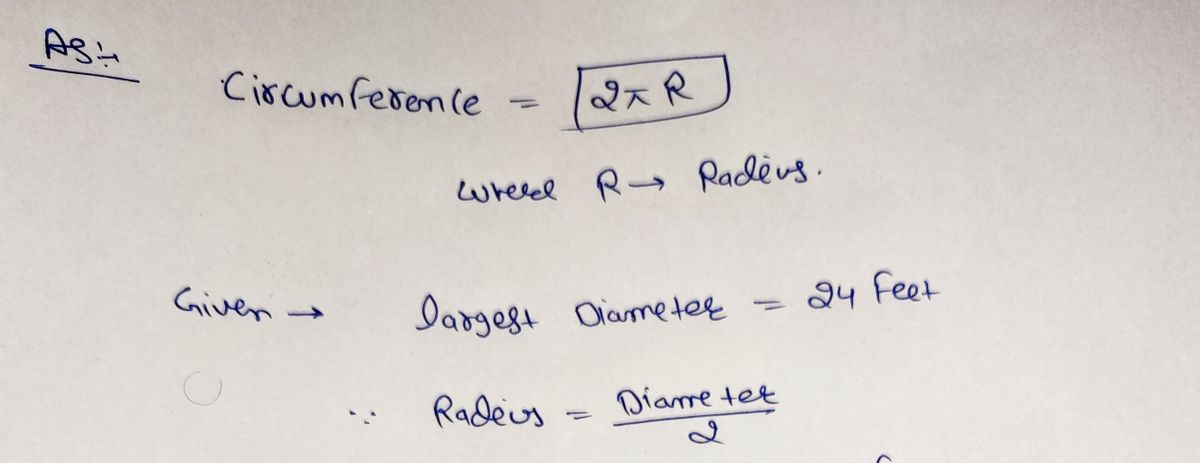 AS:-
Circumference = 2πR
where R → Radius.
Given → largest Diameter = 24 Feet
∵ Radius = Diameter / 2